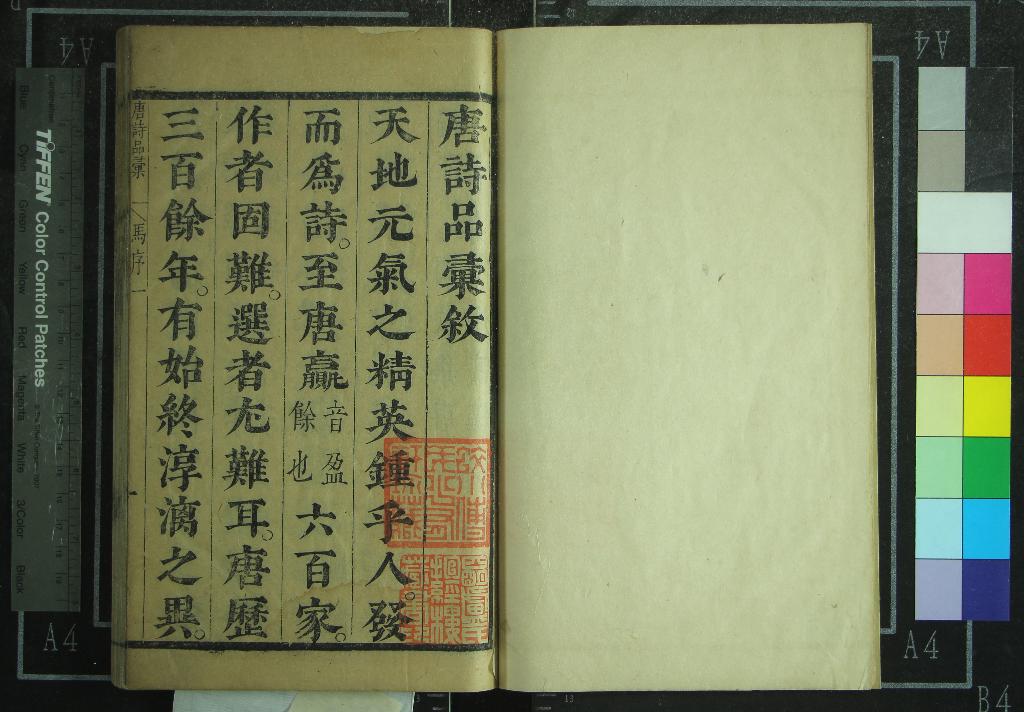 唐詩品彙敘
天地元氣之精英鍾乎人。發
而爲詩。至唐贏音盈餘也六百家。
作者固難。選者尤難耳。唐歷
三百餘年。有始終淳漓之異。
唐詩品彙
馬序
一
TIFFEN Color Control Patches
Blue Cyan Green Yellow Red Magenta White 3/Color Black
A4
A4
A4
A4
B4